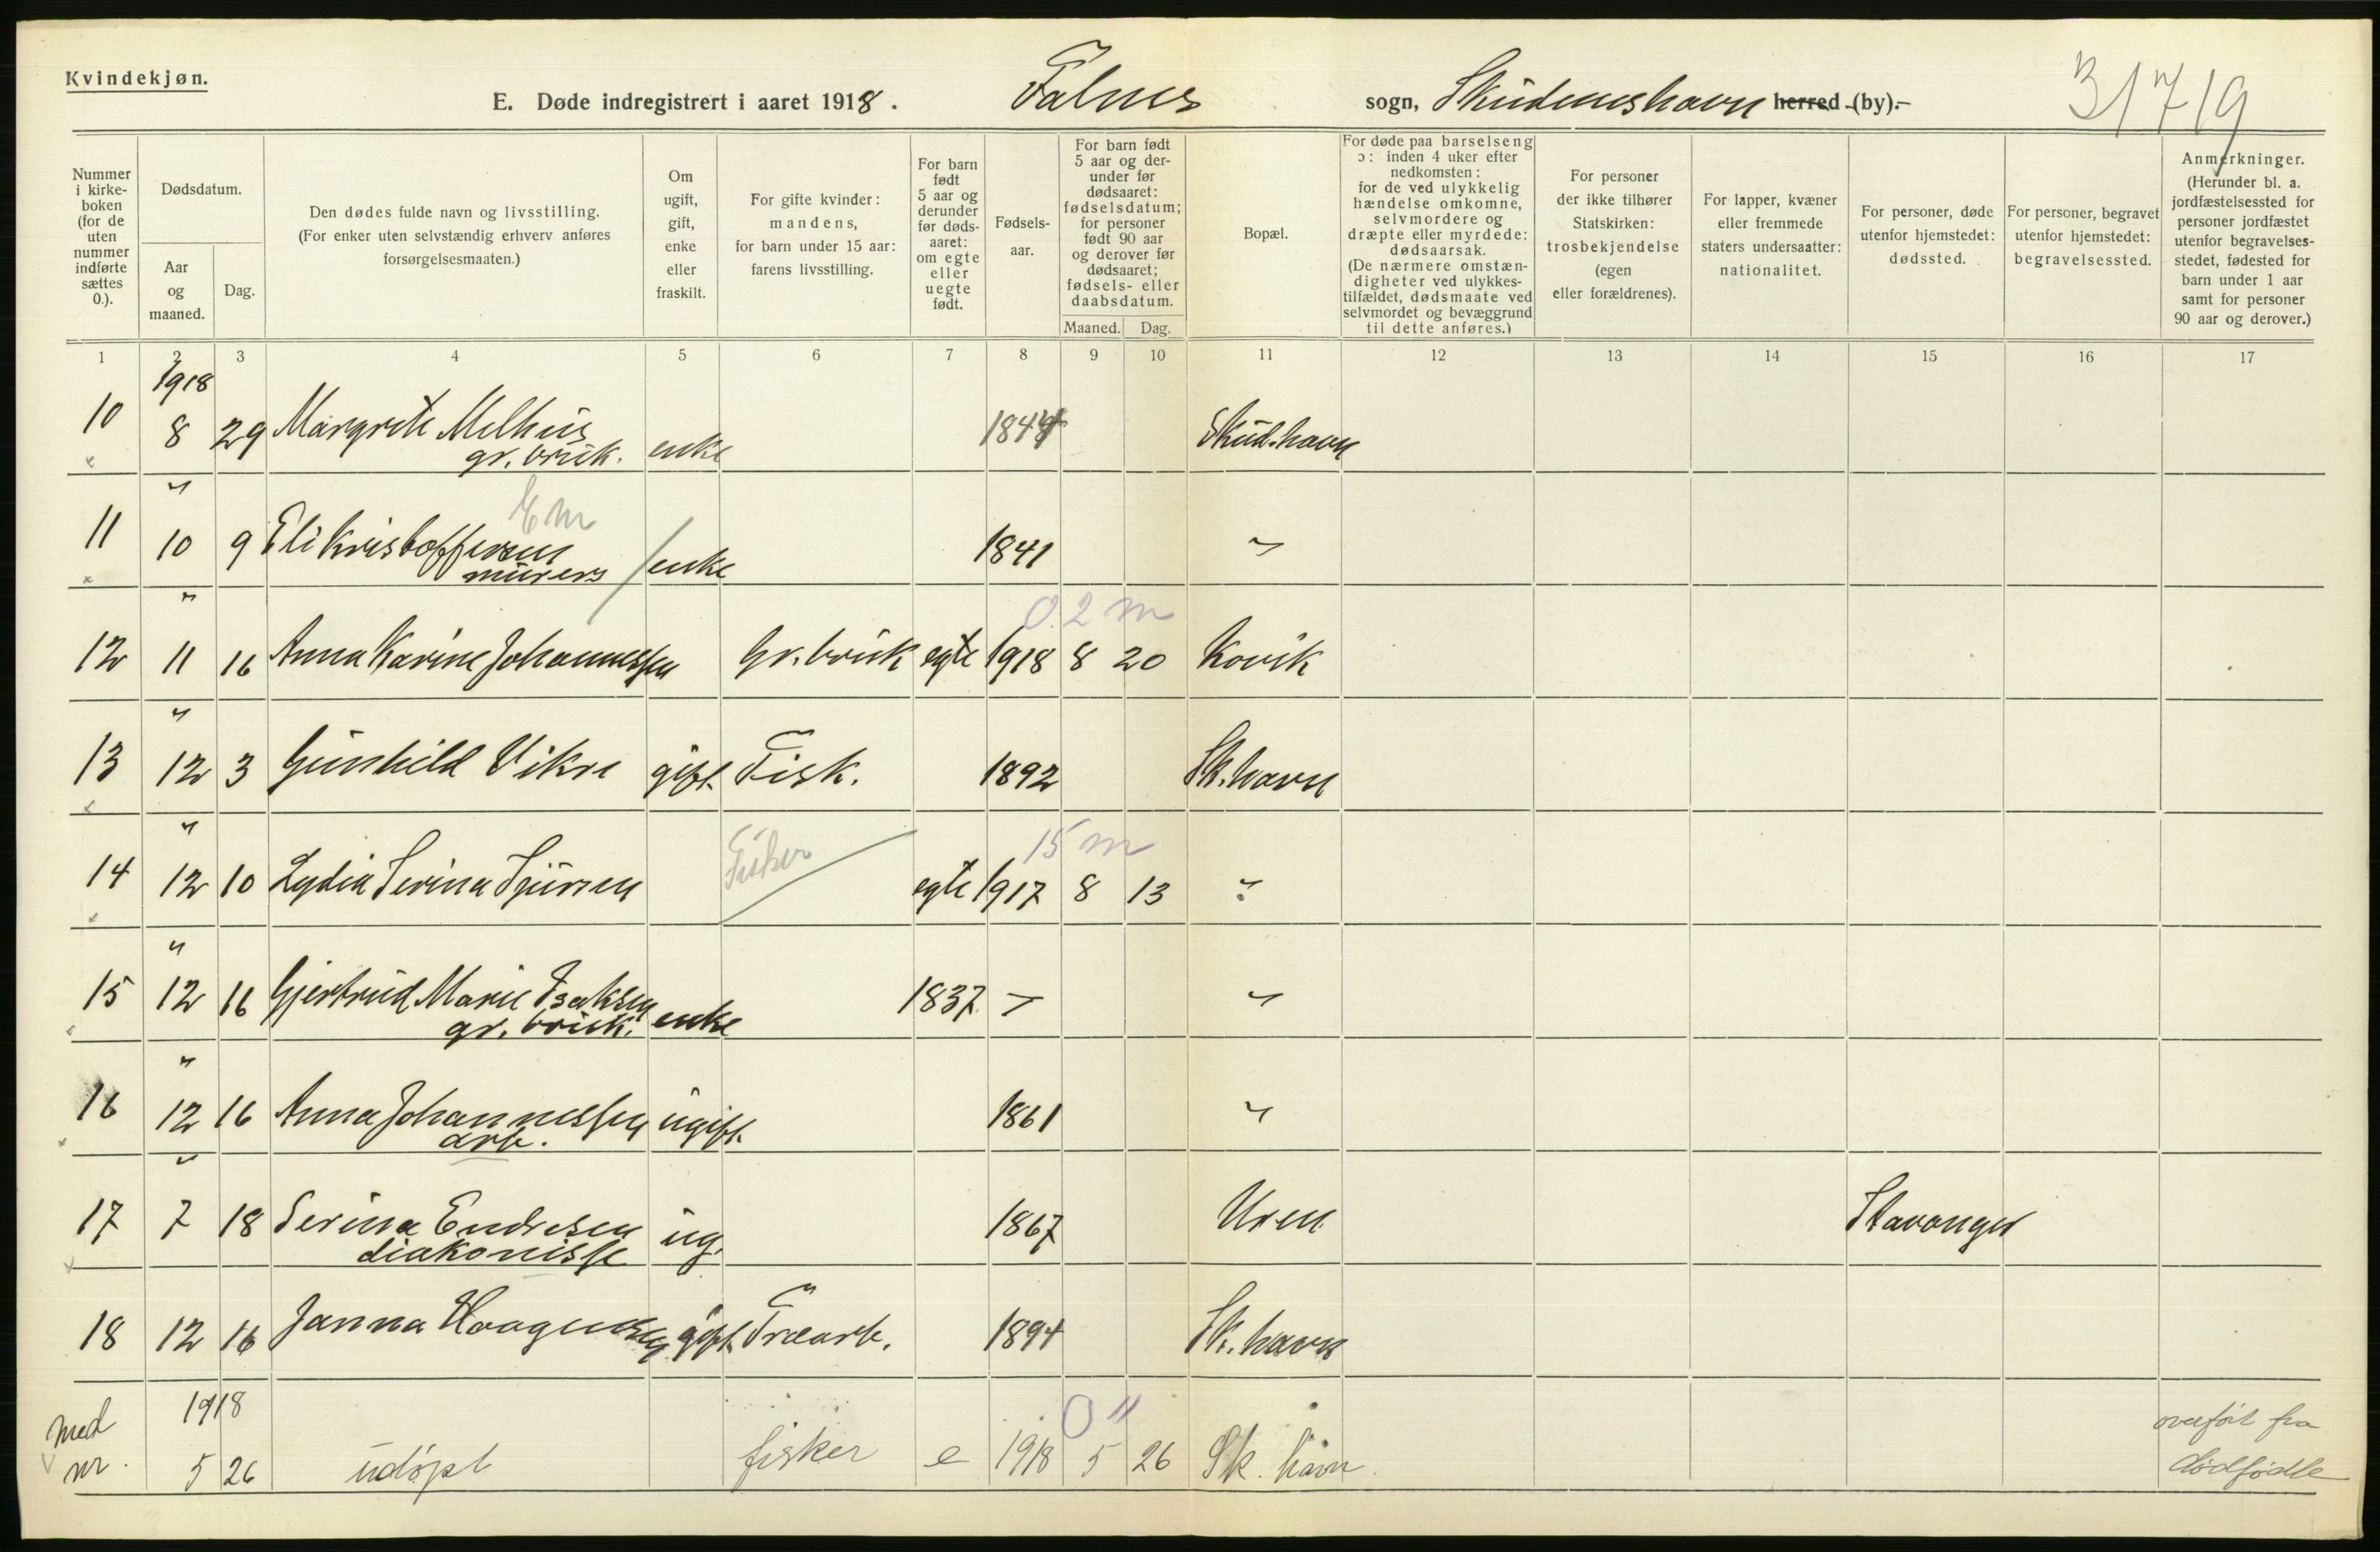 Kvindekjøn.
E. Døde indregistrert i aaret 1918. Falnes sogn, Skudeneshavn herred (by).
31719
Nummer i kirkeboken (for de uten nummer indførte sættes 0.).
Dødsdatum.
Aar og maaned.
Dag.
Den dødes fulde navn og livsstilling.
(For enker uten selvstændig erhverv anføres forsørgelsesmaaten.)
Om ugift, gift, enke eller fraskilt.
For gifte kvinder: mandens, for barn under 15 aar: farens livsstilling.
For barn født 5 aar og derunder før dødsaaret: om egte eller uegte født.
Fødselsaar.
For barn født 5 aar og derunder før dødsaaret: fødselsdatum; for personer født 90 aar og derover før dødsaaret; fødsels- eller daabsdatum.
Maaned. Dag.
Bopæl.
For døde paa barselseng ɔ: inden 4 uker efter nedkomsten: for de ved ulykkelig hændelse omkomne, selvmordere og dræpte eller myrdede: dødsaarsak. (De nærmere omstændigheter ved ulykkestilfældet, dødsmaate ved selvmordet og bevæggrund til dette anføres.)
For personer der ikke tilhører Statskirken: trosbekjendelse (egen eller forældrenes).
For lapper, kvæner eller fremmede staters undersaatter: nationalitet.
For personer, døde utenfor hjemstedet: dødssted.
For personer, begravet utenfor hjemstedet: begravelsessted.
Anmerkninger. (Herunder bl. a. jordfæstelsessted for personer jordfæstet utenfor begravelsesstedet, fødested for barn under 1 aar samt for personer 90 aar og derover.)
1 2 3 4 5 6 7 8 9 10 11 12 13 14 15 16 17
1918
10 8 29 Margrete Melhus 1844 Skud.havn
gr. bruk. enke
" Em
11 10 9 Eli Kristoffersen 1841 "
murers / enke
" 0.2 m
12 11 16 Anna Karine Johannessen Gr.bruk egte 1918 8 20 Kovik
"
13 12 3 Gunhild Vikre gift Fisk. 1892 Sk.havn
" Fisker 15 m
14 12 10 Lydia Serina Sjursen egte 1917 8 13 "
"
15 12 16 Gjertrud Marie Isaksen 1837 "
gr. bruk. enke
"
16 12 16 Anna Johannessen ugift 1861 "
arb.
"
17 7 18 Serina Endresen ug. 1867 Uren Stavanger
diakonisse
18 12 16 Janna Haagensen gift Træarb. 1894 Sk. havn
1918 0 "
med overført fra
nr. 5 26 udøpt fisker e 1918 5 26 Sk. havn dødfødte